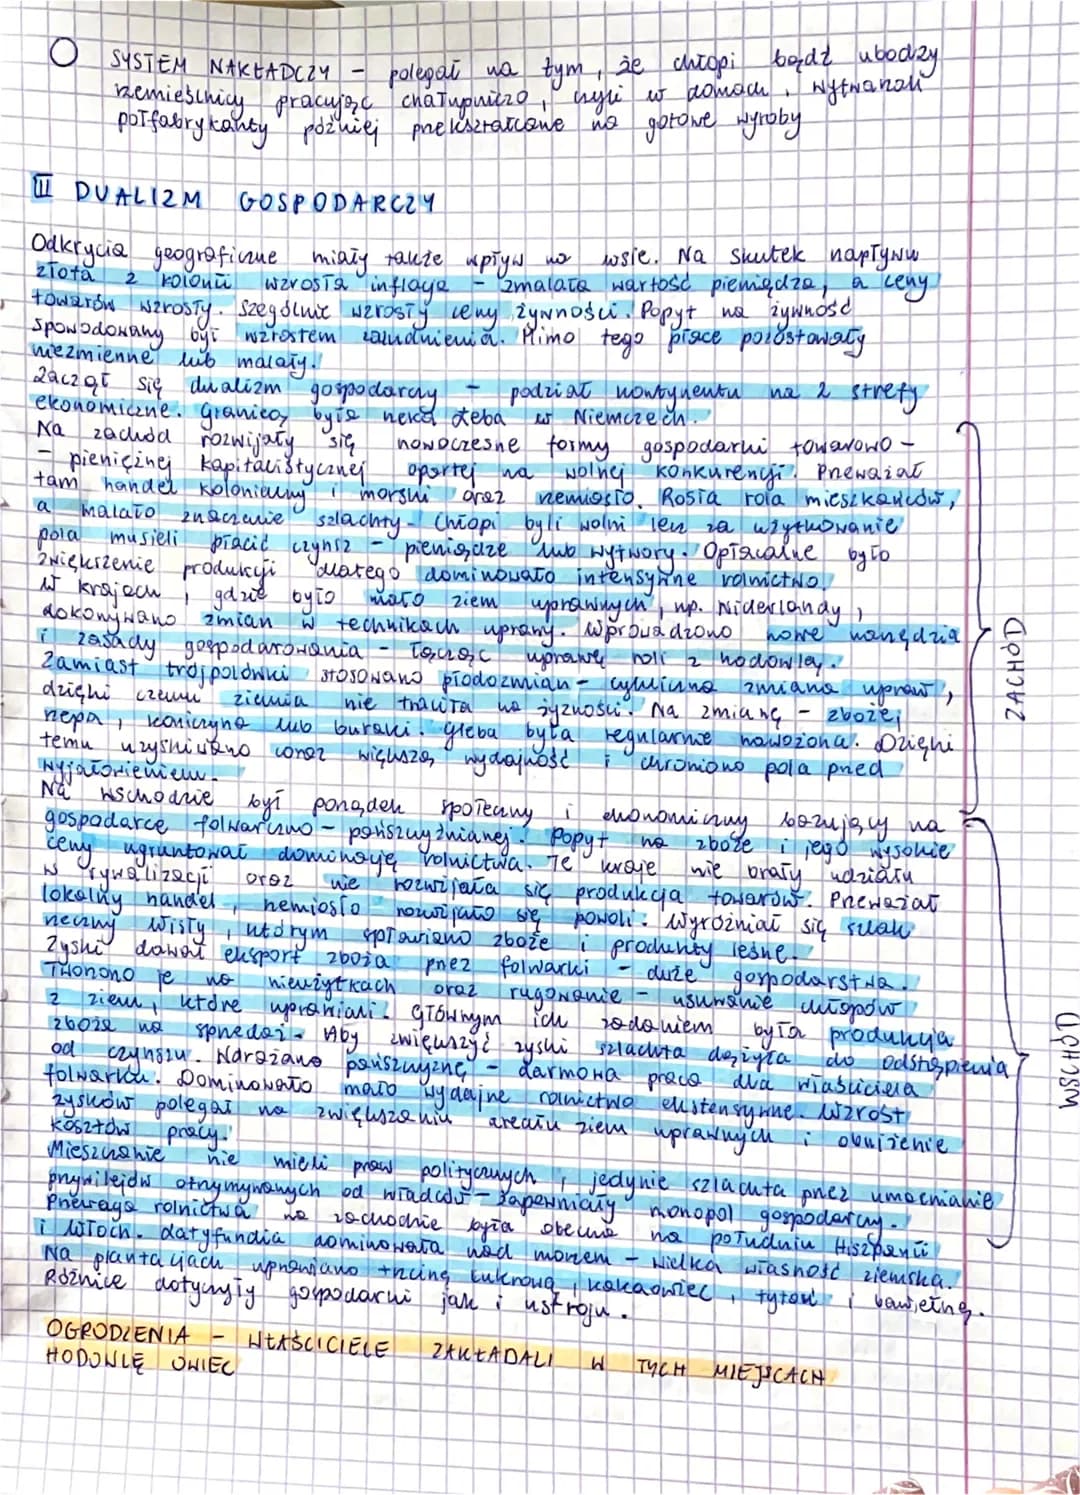 SYSTEM NAKŁADCZY - polegał na tym, że chłopi bądź ubodzy
rzemieślnicy pracując chałupniczo, czyli w domach, wytwarzali
półfabrykanty później przekształcane na gotowe wyroby
III DUALIZM GOSPODARCZY
Odkrycia geograficzne miały także wpływ na wsie. Na skutek napływu
złota z kolonii wzrosła inflacja - zmalała wartość pieniądza, a ceny
towarów wzrosły. Szególnie wzrosły ceny żywności. Popyt na żywność
spowodowany był wzrostem zaludnienia. Mimo tego płace pozostawały
niezmienne lub malały.
Zaczął się dualizm gospodarczy - podział kontynentu na 2 strefy
ekonomiczne. Granicą była rzeka Łeba w Niemczech.
Na zachód rozwijały się nowoczesne formy gospodarki towarowo -
- pieniężnej kapitalistycznej opartej na wolnej konkurencji. Przeważał
tam handel kolonialny i morski oraz rzemiosło. Rosła rola mieszkańców,
a malało znaczenie szlachty. Chłopi byli wolni lecz za użytkowanie
pola musieli płacić czynsz - pieniądze lub wytwory. Opłacalne było
zwiększenie produkcji dlatego dominowało intensywne rolnictwo.
W krajach, gdzie było mało ziem uprawnych, np. Niderlandy,
dokonywano zmian w technikach uprawy. Wprowadzono nowe narzędzia
i zasady gospodarowania - łącząc uprawę roli z hodowlą.
Zamiast trójpolówki stosowano płodozmian - cykliczna zmiana upraw,
dzięki czemu ziemia nie traciła na żyzności. Na zmianę - zboże,
rzepa, koniczyna lub buraki. Gleba była regularnie nawożona. Dzięki
temu uzyskiwano coraz większą wydajność i chroniono pola przed
wyjałowieniem.
Na wschodzie był porządek społeczny i ekonomiczny bazujący na
gospodarce folwarczno - pańszczyźnianej. Popyt na zboże i jego wysokie
ceny ugruntował dominację rolnictwa. Te kraje nie brały udziału
w rywalizacji oraz nie rozwijała się produkcja towarów. Przeważał
lokalny handel, rzemiosło rozwijało się powoli. Wyróżniał się szlak
rzeczny Wisły, którym spławiano zboże i produkty leśne.
Zyski dawał eksport zboża przez folwarki - duże gospodarstwa.
Tworzono je na nieużytkach oraz rugowanie - usuwanie chłopów
z ziem, które uprawiali. Głównym ich zadaniem była produkcja
zboża na sprzedaż. Aby zwiększyć zyski szlachta dążyła do odstąpienia
od czynszu. Wdrażano pańszczyznę - darmowa praca dla właściciela
folwarku. Dominowało mało wydajne rolnictwo ekstensywne. Wzrost
zysków polegał na zwiększaniu areału ziem uprawnych i obniżenie
kosztów pracy.
Mieszczanie nie mieli praw politycznych, jedynie szlachta przez umacnianie
przywilejów otrzymywanych od władców - zapewniały monopol gospodarczy.
Przewaga rolnictwa na zachodzie była obecna na południu Hiszpanii
i Włoch. Latyfundia dominowała nad morzem - wielka własność ziemska.
Na plantacjach uprawiano trzcinę cukrową, kakaowiec, tytoń i bawełnę.
Różnice dotyczyły gospodarki jak i ustroju.
OGRODZENIA - WŁAŚCICIELE ZAKŁADALI W TYCH MIEJSCACH
HODOWLĘ OWIEC
ZACHÓD
WSCHÓD